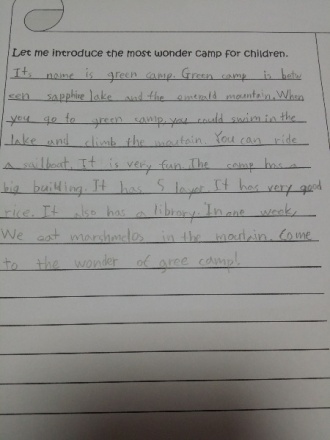 Let me introduce the most wonder camp for children.
Its name is green camp. Green camp is betw
een sapphire lake and the emerald mountain. When
you go to green camp, you could swim in the
lake and climb the moutain. You can ride
a sailboat. It is very fun. The camp has a
big building. It has 5 layer. It has very good
rice. It also has a library. In one week,
We eat marshmelos in the moutain. Come
to the wonder of gree camp!